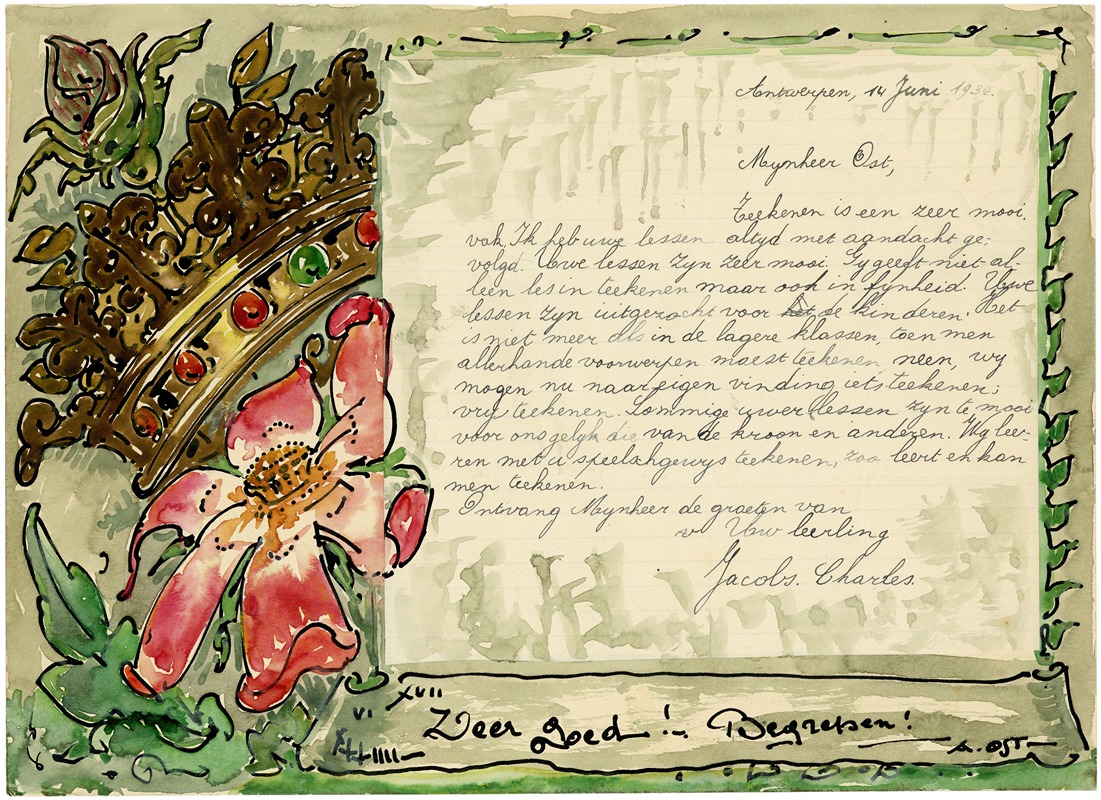 Antwerpen, 14 Juni 1934.
Mynheer Ost,
Teekenen is een zeer mooi
vak. Ik heb uwe lessen altyd met aandacht ge-
volgd. Uwe lessen zyn zeer mooi. Gy geeft niet al-
leen les in teekenen maar ook in fynheid. Uwe
lessen zyn uitgezocht voor het de kinderen. Het
is niet meer als in de lagere klassen, toen men
allerhande voorwerpen moest teekenen, neen, wy
mogen nu naar eigen vinding iets teekenen;
vry teekenen. Sommige uwer lessen zyn te mooi
voor ons gelyk die van de kroon en anderen. Wy lee-
ren met u speelschgewys teekenen, zoo leert en kan
men teekenen.
Ontvang Mynheer de groeten van
Uw leerling
Jacobs. Charles.
XVII
VI
Zeer goed! - Begrepen!
A. OST -